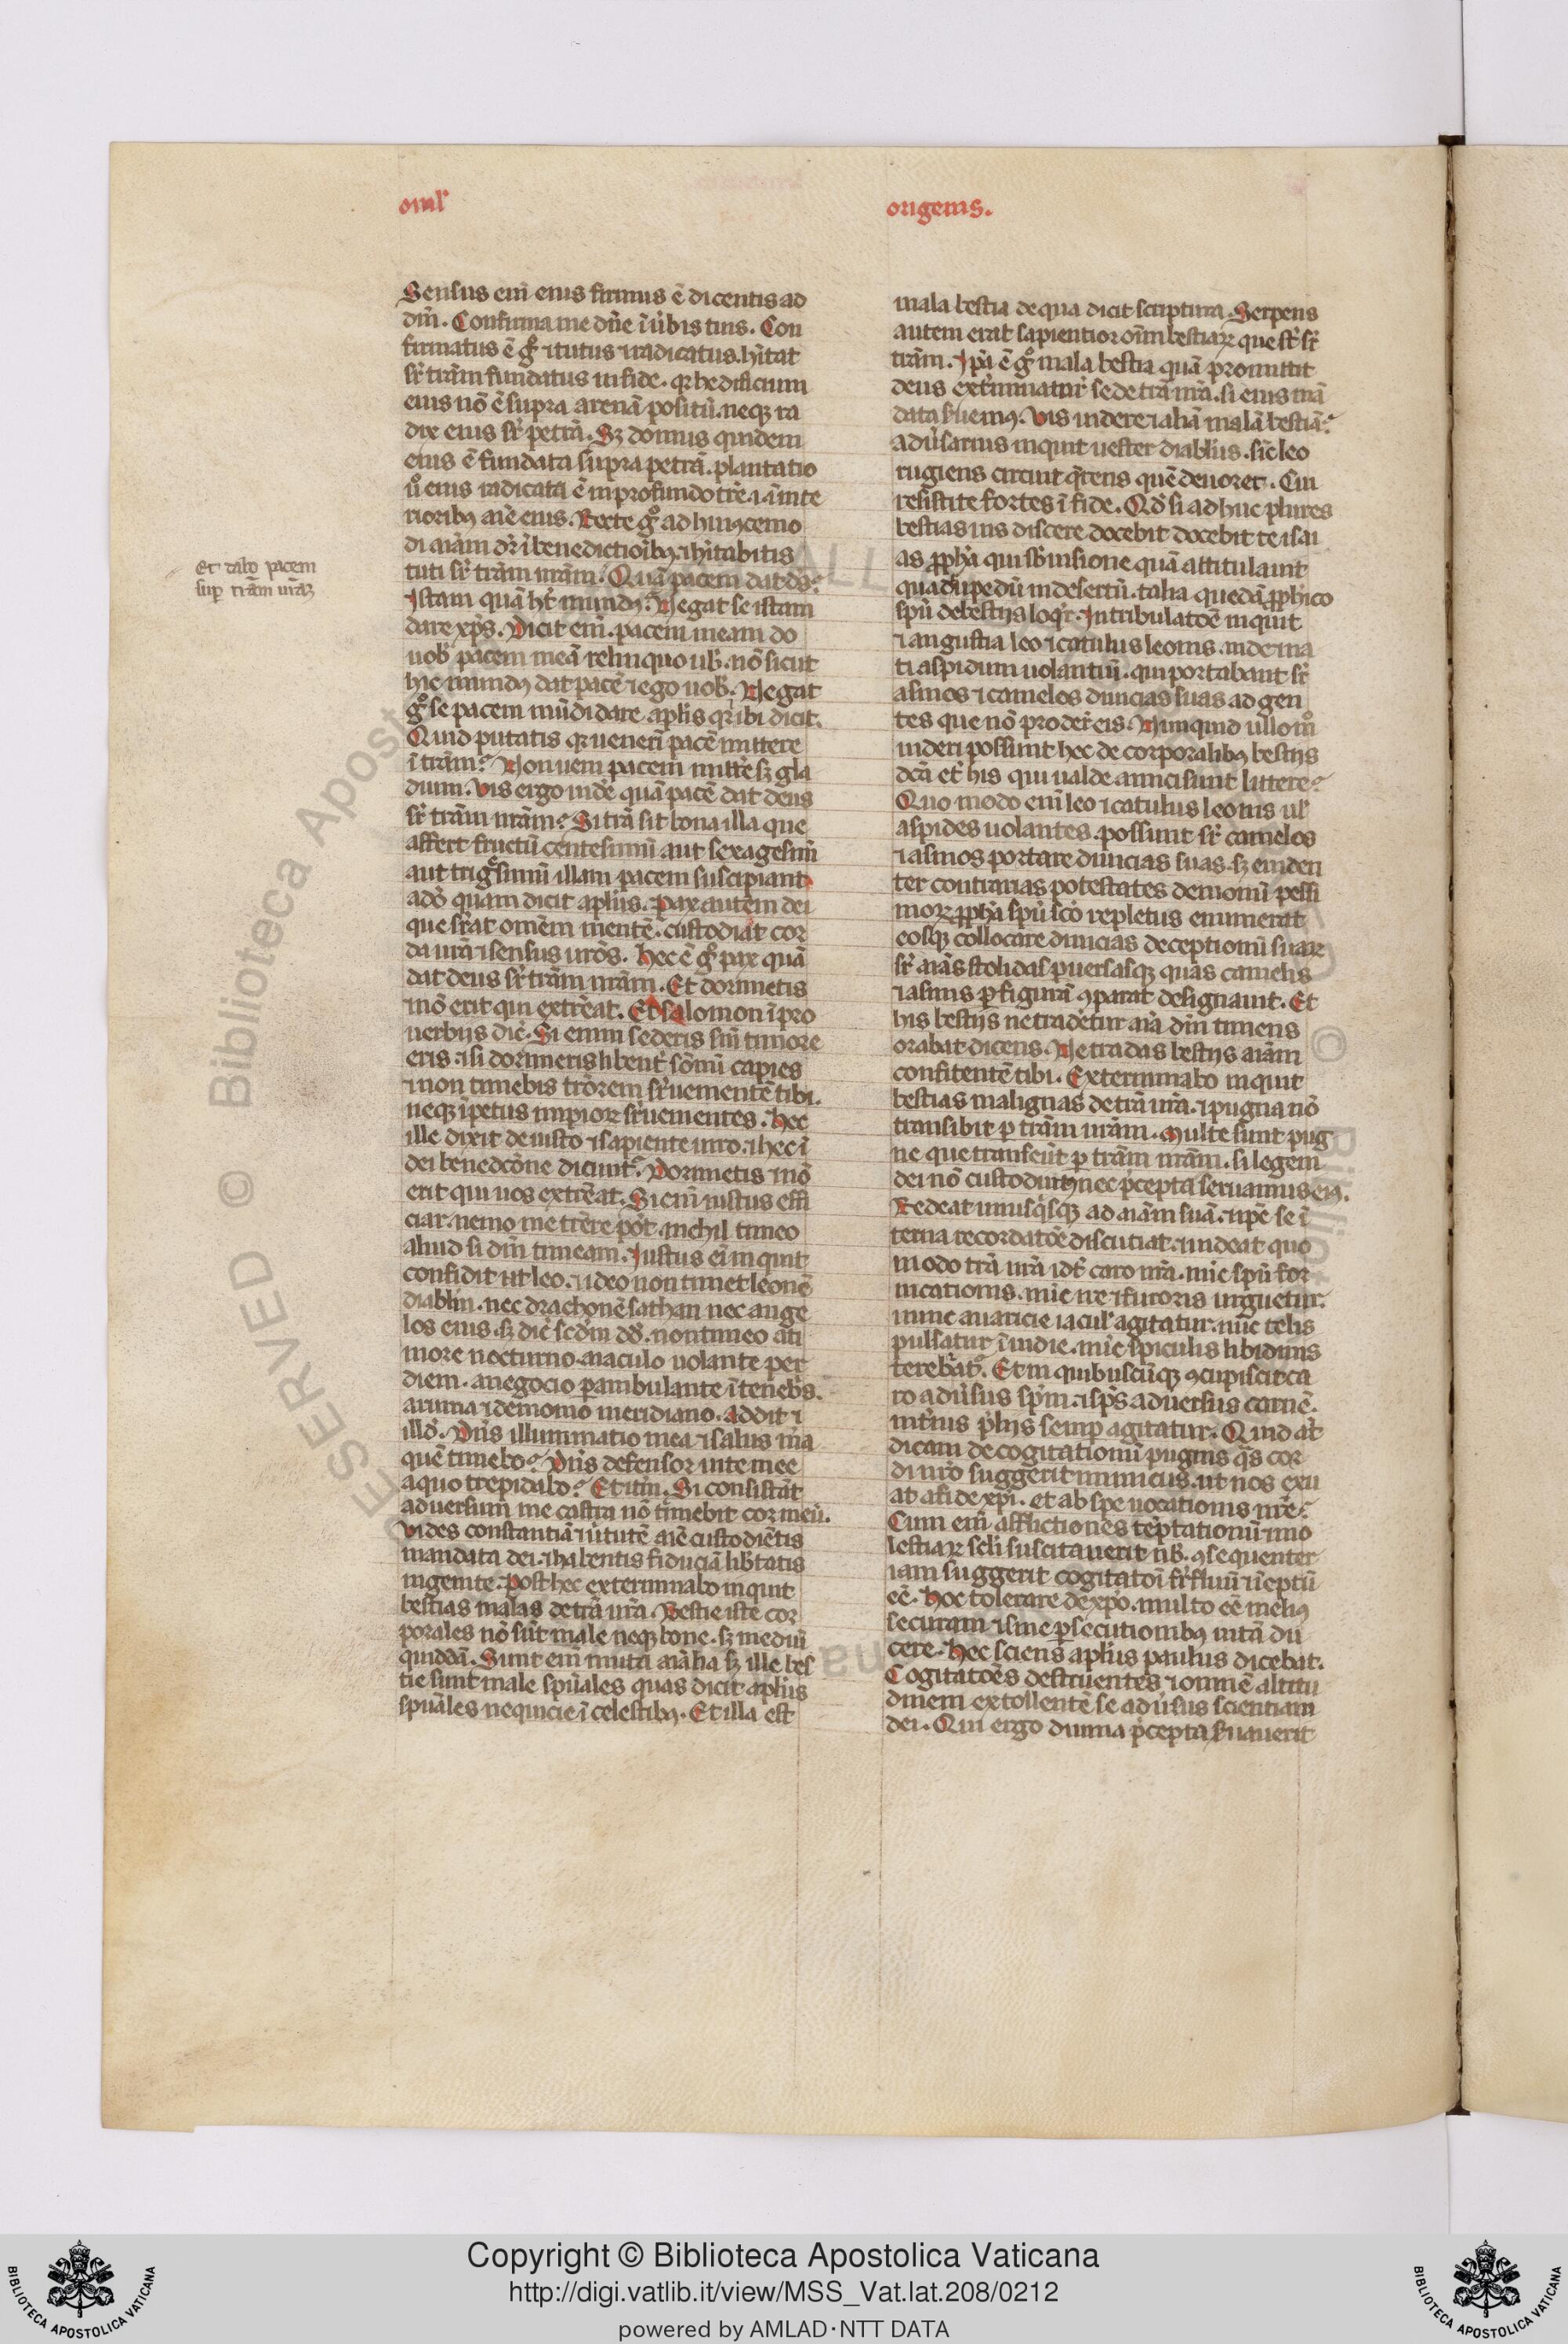 omlʼ
origenis.
Sensus enī eius firmus ē dicentis ad
dm̄. Confirma me dn̄e ī ůbis tuis. Con
firmatus ē gͦ ⁊ tutus ⁊ radicatus. hītat
sr̄ trām fundatus in fide. qr hedificium
eius nō ē supra arenā positū. neqꝫ ra
dix eius sr̄ petrā. Sꝫ domus quidem
eius ē fundata supra petrā. plantatio
ůo eius radicata ē in profundo tr̄e ⁊ ī inte
rioribꝰ aīe eius. Recte gͦ ad huiꝰcemo
di aīam dr̄ ī benedictioībꝰ. ⁊ hītabitis
tuti sr̄ trām urām. Quā pacem dat ds̄?
Et dabo pacem
sup trām urāꝫ
Istam quā ht̄ mundꝰ? Negat se istam
dare xp̄s. Dicit enī. pacem meam do
uobʼ pacem meā relinquo ubʼ. nō sicut
hic mundꝰ dat pacē ⁊ ego uobʼ. Negat
gͦ se pacem mūdi dare. apl̄is qr̄ ibi dicit.
Quid putatis qꝫ uenerī pacē mittere
ī trām? Non ueni pacem mittr̄e sꝫ gla
dium. Vis ergo uidē quā pacē dat deus
sr̄ trām urām? Si trā sit bona illa que
affert fructū centesimū aut sexagesim̄
aut trigesimū illam pacem suscipiant
ado quam dicit apl̄us. Pax autem dei
que sr̄at omēm mentē. custodiat cor
da urā ⁊ sensus uros̄. Hec ē gͦ pax quā
dat deus sr̄ trām urām. Et dormietis
⁊ nō erit qui extr̄eat. Et salomon ī pro
uerbijs dic̄. Si enim sederis sin̄ timore
eris. ⁊ si dormieris libent̄ sōmū capies
⁊ non timebis trōrem sr̄uementē tibi.
neqꝫ īpetus impioꝝ sr̄uementes. Hec
ille dixit de iusto ⁊ sapiente uiro. ⁊ hec ī
dei benedcōne dicunt̄. Dormietis ⁊ nō
erit qui uos extr̄eat. Si enī iustus effi
ciar. nemo me tr̄ere pōt. nichil timeo
aliud si dm̄ timeam. Iustus eī inquit
confidit ut leo. ⁊ ideo non timet leonē
diablm̄. nec drachonē sathan nec ange
los eius. sꝫ dic̄ scd̄m dd̄. non timeo a ti
more nocturno. a iaculo uolante per
diem. a negocio pambulante ī tenebʼs.
a ruina ⁊ demonio meridiano. Addit ⁊
illd̄. Dn̄s illuminatio mea ⁊ salus m̄a
quē timebo? Dn̄s defensor uite mee
a quo trepidabo? Et itm̄. Si consistāt
aduersum me castra nō timebit cor meū.
Vides constantiā ⁊ ůtutē aīe custodiētis
mandata dei. ⁊ habentis fiduciā libʼtatis
ingenite. Post hec exterminabo inquit
bestias malas de trā urā. Bestie iste cor
porales nō sūt male neqꝫ bone. sꝫ mediū
quiddā. Sunt enī muta aīalia sꝫ ille bes
tie sunt male spūales quas dicit apl̄us
spūales nequicie ī celestibꝰ. Et illa est
mala bestia de qua dicit scriptura. Serpens
autem erat sapientior oīm bestiaꝝ que st̄ sr̄
trām. Ip̄a ē gͦ mala bestia quā promittit
deus ext̄minatur̄ se de trā urā. si eius mā
data suemꝰ. Vis uidere ⁊ aliā malā bestiā?
adůsarius inquit uester diablūs. sic̄ leo
rugiens circuit q̄rens quē deuoret. Cui
resistite fortes ī fide. Qd̄ si adhuc plures
bestias uis discere docebit docebit te isai
as ꝓph̄a qui sb̄ uisione quā attitulauit
quadʼupedū in desertū. talia quedā ꝓphico
spū de bestijs loqr̄. In tribulatōe inquit
⁊ angustia leo ⁊ catulus leonis. inde na
ti aspidum uolantiū. qui portabant sr̄
asinos ⁊ camelos diuicias suas ad gen
tes que nō proder̄ eis. Nunquid ullo mͦ
uideri possunt hec de corporalibꝰ bestijs
dc̄a et̄ his qui ualde amici sunt littere?
Quo modo enī leo ⁊ catulus leonis ul̄
aspides uolantes. possunt sr̄ camelos
⁊ asinos portare diuicias suas. sꝫ euiden
ter contrarias potestates demonū pessi
moꝝ ꝓph̄a spū sc̄o repletus enumerat
eosqꝫ collocare diuicias deceptionū suaꝝ
sr̄ aīas stolidas puersasqꝫ quas camelis
⁊ asinis p figurā ꝯparat̄ designauit. Et
his bestijs ne tradetur aīa dm̄ timens
orabat dicens. Ne tradas bestijs aīam
confitentē tibi. Exterminabo inquit
bestias malignas de trā urā. ⁊ pugna nō
transibit p trām urām. Multe sunt pug
ne que transeūt p trām urām. si legem
dei nō custodimꝰ nec p̄cepta seruamus eiꝰ.
Redeat unusq̄sqꝫ ad aīam suā. ⁊ ip̄e se ī
terna recordatōe discutiat. ⁊ uideat quo
modo trā urā id ē caro urā. nūc spū for
nicationis. nūc ire ⁊ furoris urguetur.
nunc auaricie iaculʼ agitatur. nūc telis
pulsatur īuidie. nūc spiculis libidinis
terebʼatͬ. Et in quibuscūqꝫ ꝯcupiscit ca
ro adůsus spm̄. ⁊ sps̄ aduersus carnē.
int̄ius p̄lijs semp agitatur. Quid at̄
dicam de cogitationū pugnis q̄s cor
di uro suggerit inimicus. ut nos exu
at a fide xpi. et ab spe uocationis nr̄e?
Cum enī afflictiones tēptationū ⁊ mo
lestiaꝝ seb̄i suscitauerit nb̄. ꝯsequenter
iam suggerit cogitatōī sr̄fluū ⁊ ineptū
ee̅. Hoc tolerare de xpo. multo ee̅ meliꝰ
securam ⁊ sine psecutionibꝰ uitā du
cere. Hec sciens apl̄us paulus dicebat.
Cogitatōes destruentes ⁊ omnē altitu
dinem extollentē se adůsus scientiam
dei. Qui ergo diuina p̄cepta suauerit
Copyright © Biblioteca Apostolica Vaticana
http://digi.vatlib.it/view/MSS_Vat.lat.208/0212
powered by AMLAD·NTT DATA